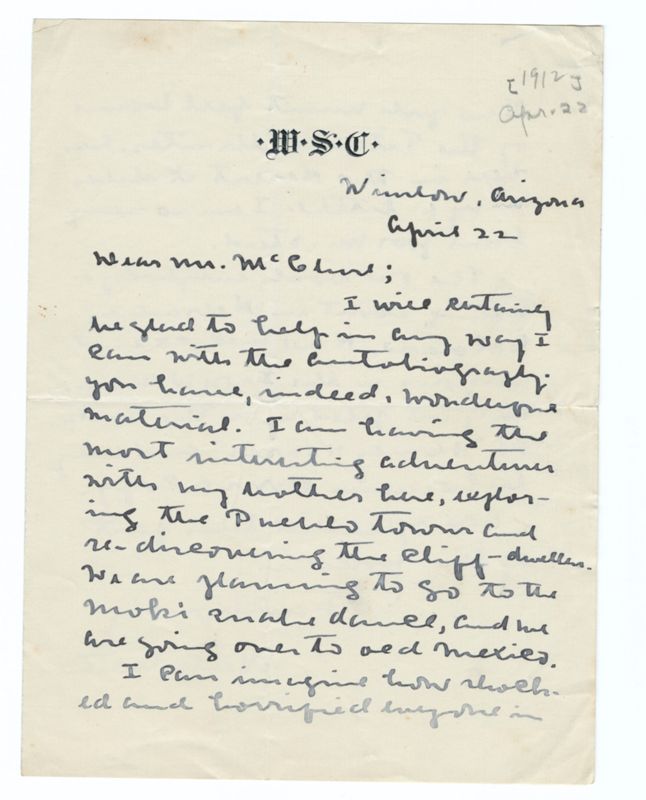 [1912]
Apr. 22
·W·S·C·
Winslow, Arizona
April 22
Dear Mr. McClure;
I will certainly
be glad to help in any way I
can with the autobiography.
you have, indeed, wonderful
material. I am having the
most interesting adventures
with my brother here, explor-
ing the Pueblo towns and
re-discovering the cliff-dwellers.
We are planning to go to the
Moki snake dance, and we
are going over to old Mexico.
I can imagine how shock-
ed and horrified everyone in